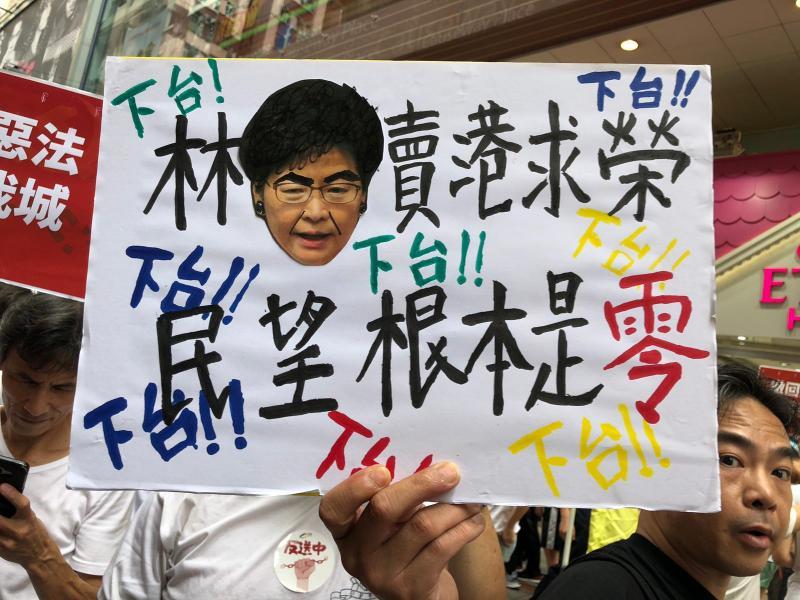 下台!
下台!!
林 賣港求榮
下台!!
下台!!
下台!!
民望根本是零
下台!!
下台!!
惡法
城
反送中
ET
H